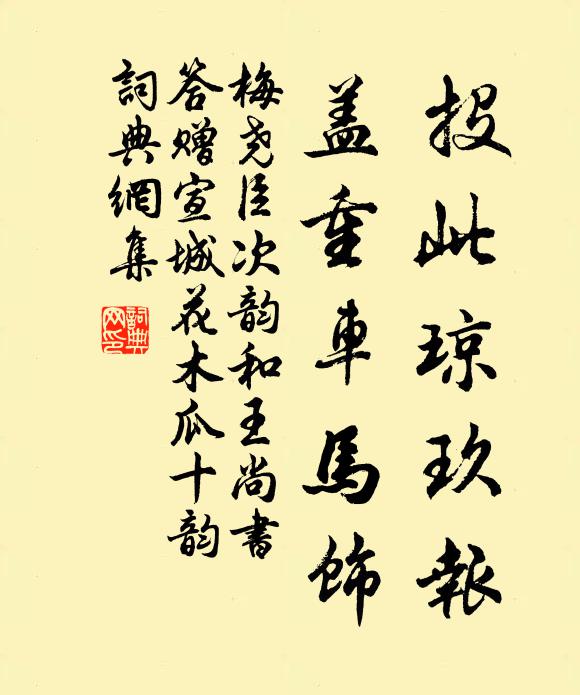 投此琼玖報
盖重車馬飾
梅尧臣次韵和王尚書
答赠宣城花木瓜十韵
詞典網集
詞典网印